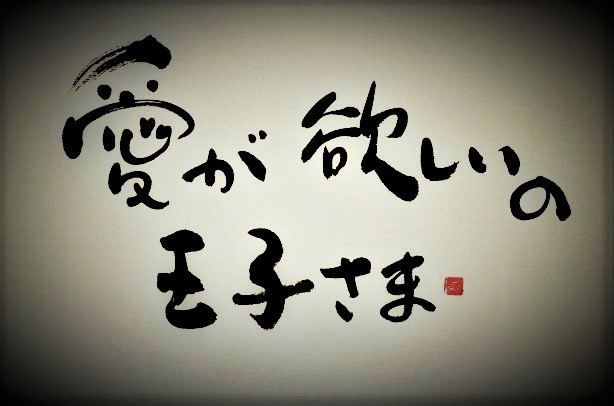 愛が欲しいの
王子さま